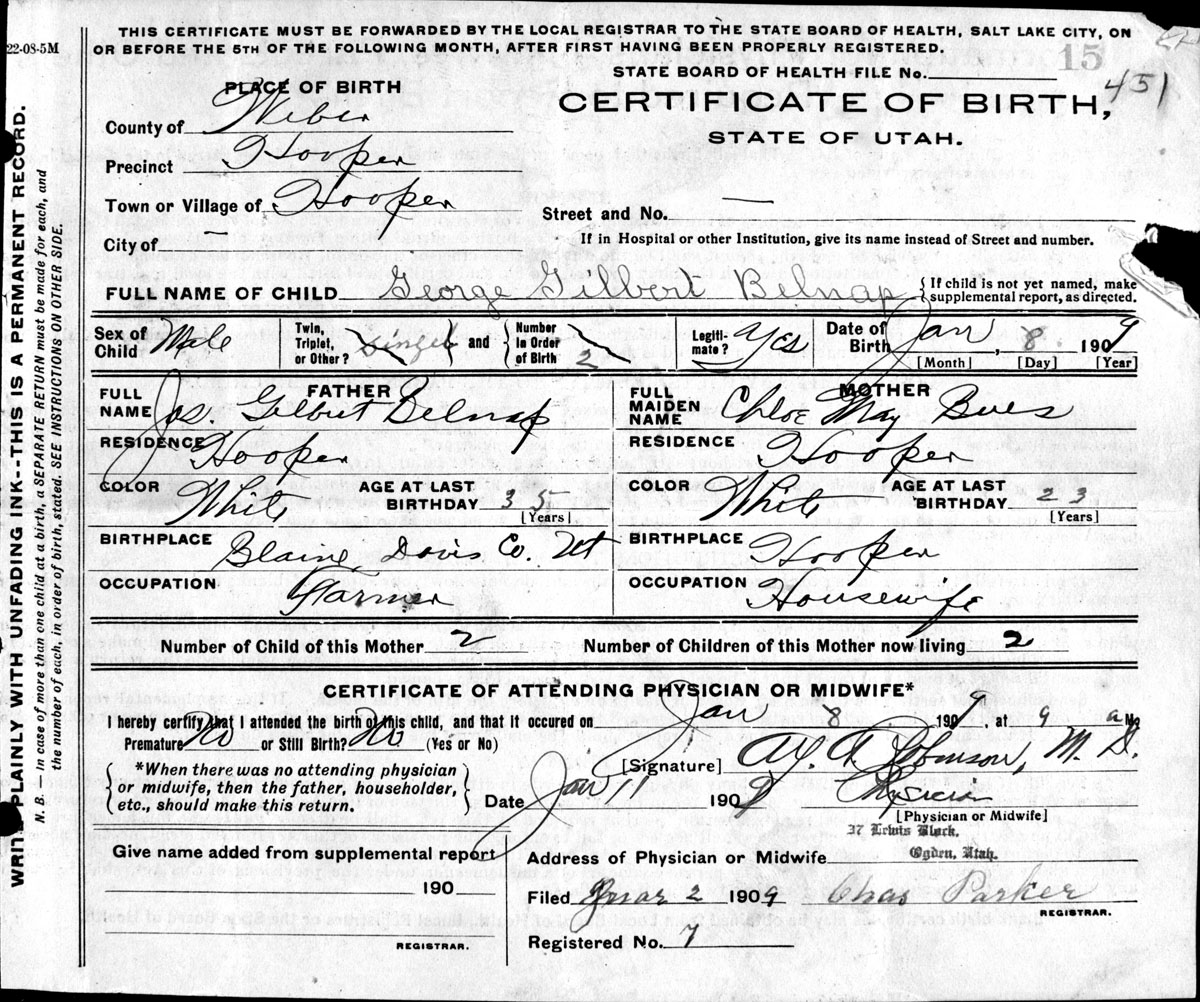 THIS CERTIFICATE MUST BE FORWARDED BY THE LOCAL REGISTRAR TO THE STATE BOARD OF HEALTH, SALT LAKE CITY, ON
22-08-5M
OR BEFORE THE 5TH OF THE FOLLOWING MONTH, AFTER FIRST HAVING BEEN PROPERLY REGISTERED.
15
451
PLACE OF BIRTH
STATE BOARD OF HEALTH FILE No.
County of Weber
CERTIFICATE OF BIRTH,
STATE OF UTAH.
Precinct Hooper
Town or Village of Hooper
Street and No. —
City of —
If in Hospital or other Institution, give its name instead of Street and number.
FULL NAME OF CHILD George Gilbert Belnap { If child is not yet named, make
supplemental report, as directed.
Sex of Child Male
Twin, Triplet, or Other? Single and { Number in Order of Birth 2
Legiti-mate? Yes
Date of Birth Jan, 8 1909
[Month] [Day] [Year]
FATHER
FULL NAME Jos. Gilbert Belnap
RESIDENCE Hooper
COLOR White AGE AT LAST BIRTHDAY 35
[Years]
BIRTHPLACE Blaine, Davis Co. Ut
OCCUPATION Farmer
MOTHER
FULL MAIDEN NAME Chloe May
RESIDENCE Hooper
COLOR White AGE AT LAST BIRTHDAY 23
[Years]
BIRTHPLACE Hooper
OCCUPATION Housewife
Number of Child of this Mother 2 Number of Children of this Mother now living 2
CERTIFICATE OF ATTENDING PHYSICIAN OR MIDWIFE*
I hereby certify that I attended the birth of this child, and that it occured on Jan 8 1909, at 9 a M.
Premature No or Still Birth? No (Yes or No)
[Signature] Johnson, M. D.
{ *When there was no attending physician
or midwife, then the father, householder,
etc., should make this return. }
Date Jan 1909
Physician
[Physician or Midwife]
37 Lewis Block,
Give name added from supplemental report
Address of Physician or Midwife Ogden, Utah.
190
Filed Mar 2 1909 Chas Parker
REGISTRAR.
REGISTRAR.
Registered No. 7
WRITE PLAINLY WITH UNFADING INK--THIS IS A PERMANENT RECORD.
N. B. — in case of more than one child at a birth, a SEPARATE RETURN must be made for each, and
the number of each, in order of birth, stated. SEE INSTRUCTIONS ON OTHER SIDE.